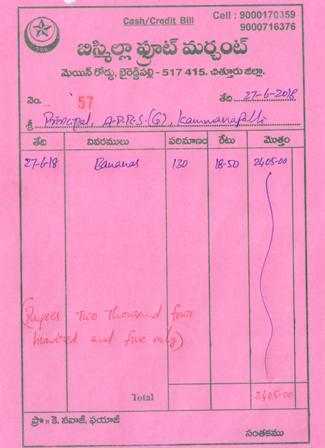 Cash/Credit Bill
Cell : 9000170359
9000716376
బిస్మిల్లా ఫ్రూట్ మర్చంట్
మెయిన్ రోడ్డు, బైరెడ్డిపల్లి - 517 415. చిత్తూరు జిల్లా.
నెం. 57 తేది 27-6-2018
శ్రీ Principal, A.P.R.S.(G), Kammanapalli
తేది వివరములు పరిమాణం రేటు మొత్తం
27-6-18 Bananas 130 18-50 2405-00
(Rupees Two Thousand four
hundred and five only)
Total 2405-00
ప్రొ॥ కె. నవాజ్, ఫయాజ్
సంతకము